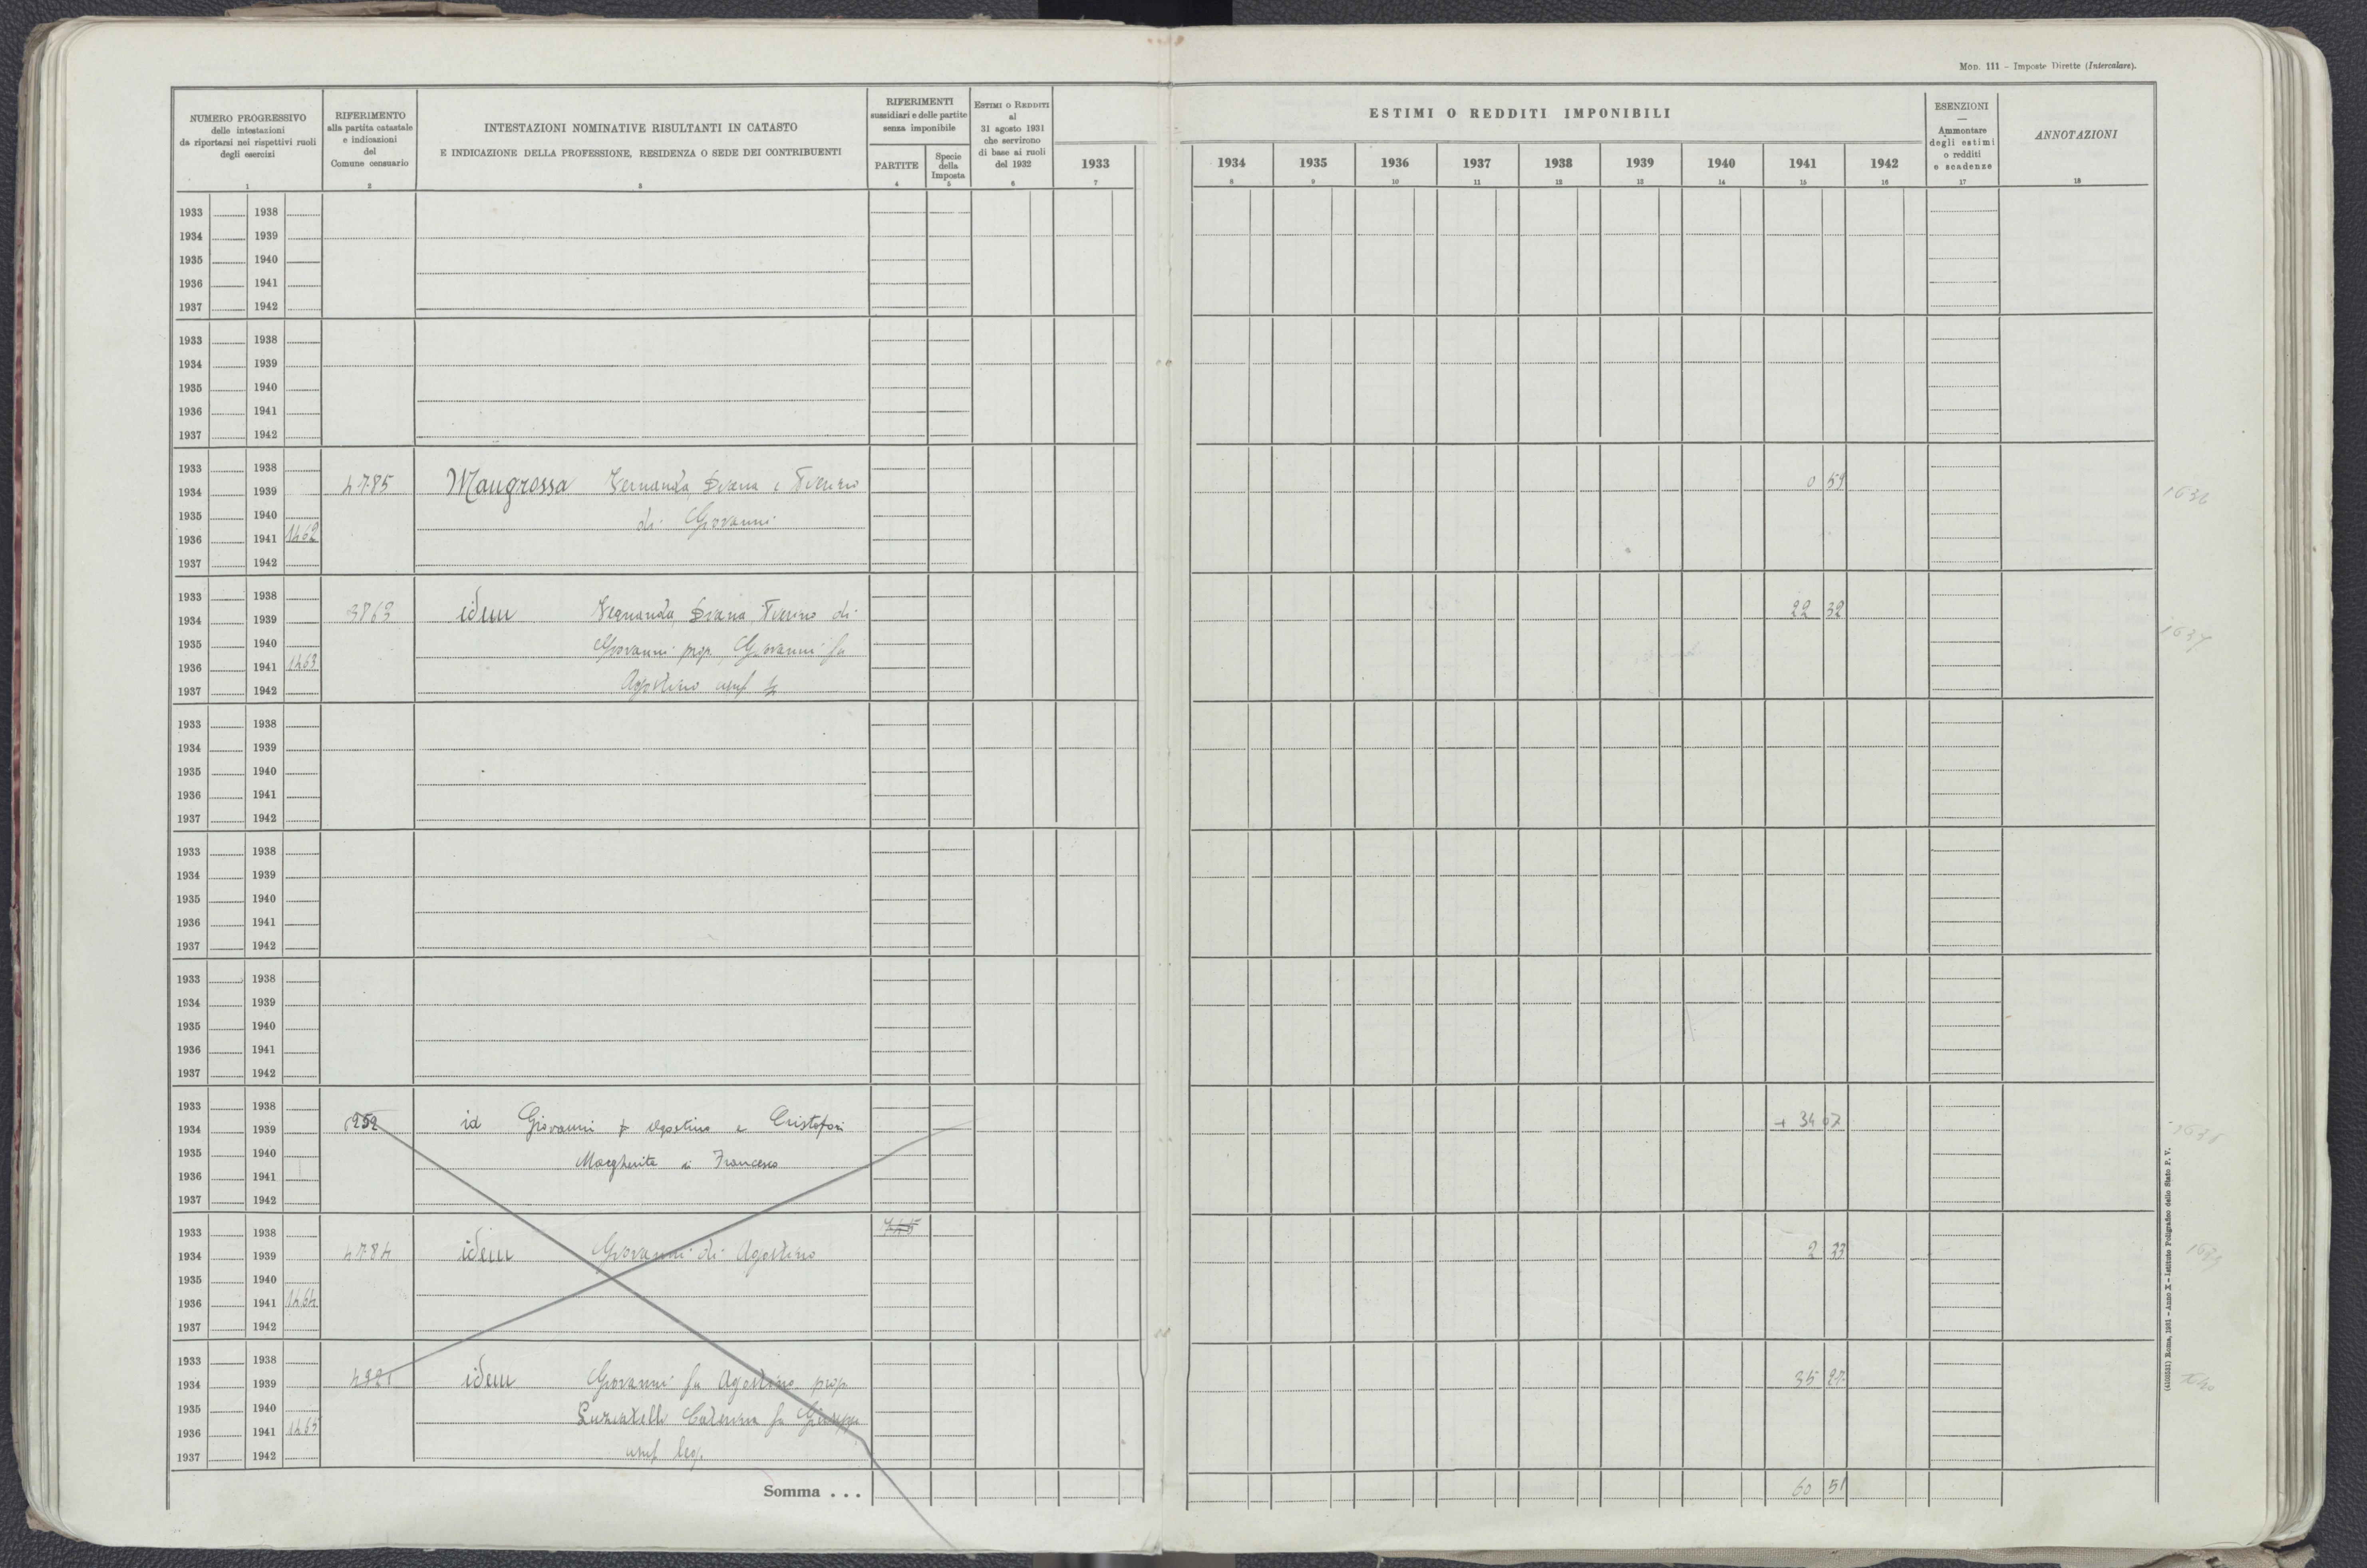 MOD. 111 – Imposte Dirette (Intercalare).
NUMERO PROGRESSIVO
delle intestazioni
da riportarsi nei rispettivi ruoli
degli esercizi
1
RIFERIMENTO
alla partita catastale
e indicazioni
del
Comune censuario
2
INTESTAZIONI NOMINATIVE RISULTANTI IN CATASTO
E INDICAZIONE DELLA PROFESSIONE, RESIDENZA O SEDE DEI CONTRIBUENTI
3
RIFERIMENTI
sussidiari e delle partite
senza imponibile
PARTITE
4
Specie
della
Imposta
5
ESTIMI O REDDITI
al
31 agosto 1931
che servirono
di base ai ruoli
del 1932
6
1933
7
ESTIMI O REDDITI IMPONIBILI
1934 1935 1936 1937 1938 1939 1940 1941 1942
8 9 10 11 12 13 14 15 16
ESENZIONI
—
Ammontare
degli estimi
o redditi
e scadenze
17
ANNOTAZIONI
18
1933 1938
1934 1939
1935 1940
1936 1941
1937 1942
1933 1938
1934 1939
1935 1940
1936 1941
1937 1942
1933 1938
1934 1939 4785 Maugrossa 0 59
1935 1940 di Giovanni
1936 1941 1462
1937 1942
1933 1938
1934 1939 3863 idem di 22 32
1935 1940 Giovanni prop. Giovanni fu
1936 1941 1463
1937 1942 Agostino usuf.
1933 1938
1934 1939
1935 1940
1936 1941
1937 1942
1933 1938
1934 1939
1935 1940
1936 1941
1937 1942
1933 1938
1934 1939
1935 1940
1936 1941
1937 1942
1933 1938
1934 1939 id Giovanni Agostino e Cristofori + 34 07
1935 1940 Margherita di Francesco
1936 1941
1937 1942
1933 1938 745
1934 1939 4784 idem Giovanni di Agostino 2 33
1935 1940
1936 1941 1464
1937 1942
1933 1938
1934 1939 4321 idem Giovanni fu Agostino prop. 35 27
1935 1940 Caterina fu Giuseppe
1936 1941 1465
1937 1942 usuf. leg.
Somma . . . 60 51
(4103531) Roma, 1931 – Anno X – Istituto Poligrafico dello Stato P. V.